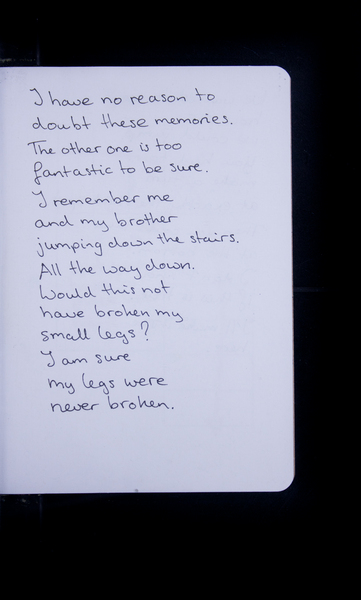 I have no reason to
doubt these memories.
The other one is too
fantastic to be sure.
I remember me
and my brother
jumping down the stairs.
All the way down.
Would this not
have broken my
small legs?
I am sure
my legs were
never broken.